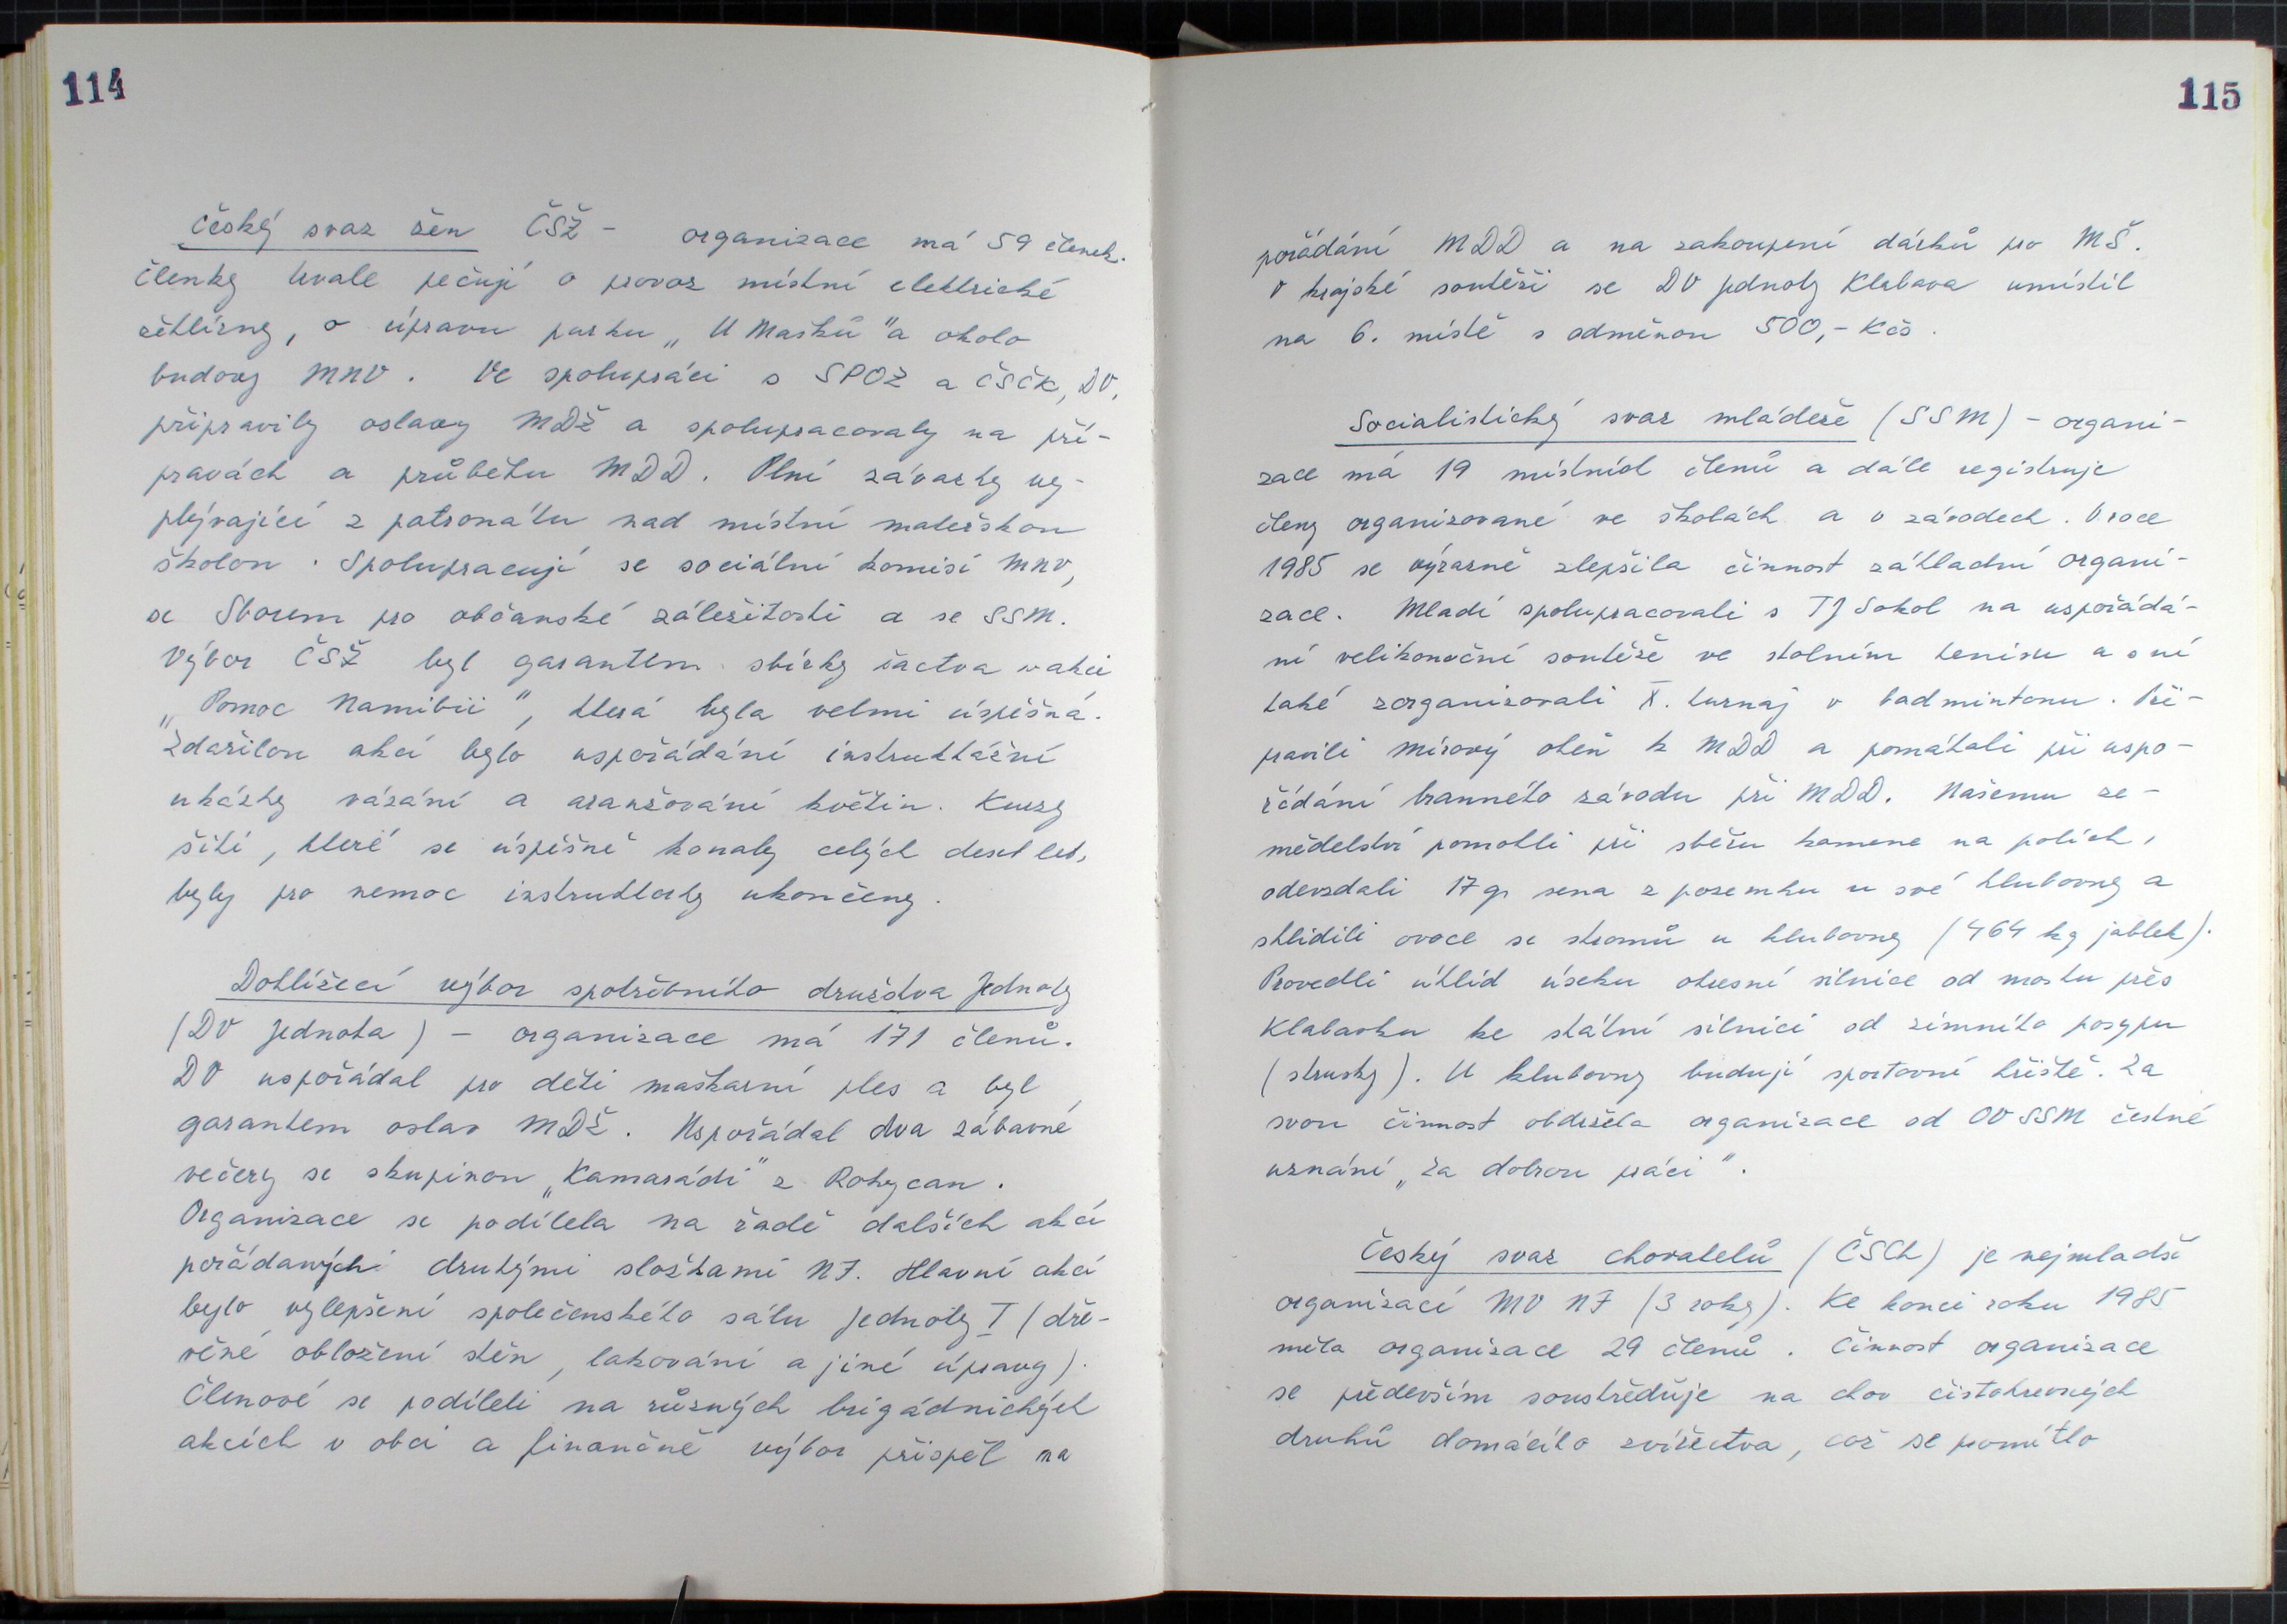 114
Český svaz žen ČSŽ - organizace má 59 členek.
Členky trvale pečují o provoz místní elektrické
žehlírny, o úpravu parku „U Mašků" a okolo
budovy MNV. Ve spolupráci s SPOZ a ČSČK, DV,
připravily oslavy MDŽ a spolupracovaly na pří-
pravách a průběhu MDD. Plní závazky vy-
plývající z patronátu nad místní mateřskou
školou. Spolupracují se sociální komisí MNV,
se Sborem pro občanské záležitosti a se SSM.
Výbor ČSŽ byl garantem sbírky šactva v akci
„Pomoc Namibii", která byla velmi úspěšná.
Zdařilou akcí bylo uspořádání instruktážní
ukázky vázání a aranžování květin. Kurzy
šití, které se úspěšně konaly celých deset let,
byly pro nemoc instruktorky ukončeny.
Dohlížecí výbor spotřebního družstva Jednoty
(DV Jednota) - organizace má 171 členů.
DV uspořádal pro děti maškarní ples a byl
garantem oslav MDŽ. Uspořádal dva zábavné
večery se skupinou „Kamarádi" z Rokycan.
Organizace se podílela na řadě dalších akcí
pořádaných druhými složkami NF. Hlavní akcí
bylo vylepšení společenského sálu Jednoty I (dře-
věné obložení stěn, lakování a jiné úpravy).
Členové se podíleli na různých brigádnických
akcích v obci a finančně výbor přispěl na
115
pořádání MDD a na zakoupení dárků pro MŠ.
V krajské soutěži se DV Jednoty Klabava umístil
na 6. místě s odměnou 500,- Kčs.
Socialistický svaz mládeže (SSM) - organi-
zace má 19 místních členů a dále registruje
členy organizované ve školách a v závodech. V roce
1985 se výrazně zlepšila činnost základní organi-
zace. Mladí spolupracovali s TJ Sokol na uspořádá-
ní velikonoční soutěže ve stolním tenisu a s ní
také zorganizovali X. turnaj v badmintonu. Při-
pravili mírový oheň k MDD a pomáhali při uspo-
řádání branného závodu při MDD. Našemu ze-
mědelství pomohli při sběru kamene na polích,
odevzdali 17 q sena z pozemku u své klubovny a
sklidili ovoce se stromů u klubovny (464 kg jablek).
Provedli úklid úseku okresní silnice od mostu přes
Klabavku ke státní silnici od zimního posypu
(strusky). U klubovny budují sportovní hřiště. Za
svou činnost obdržela organizace od OV SSM čestné
uznání „Za dobrou práci".
Český svaz chovatelů (ČSCh) je nejmladší
organizací MV NF (3 roky). Ke konci roku 1985
měla organizace 29 členů. Činnost organizace
se především soustřeďuje na chov čistokrevných
druhů domácího zvířectva, což se promítlo